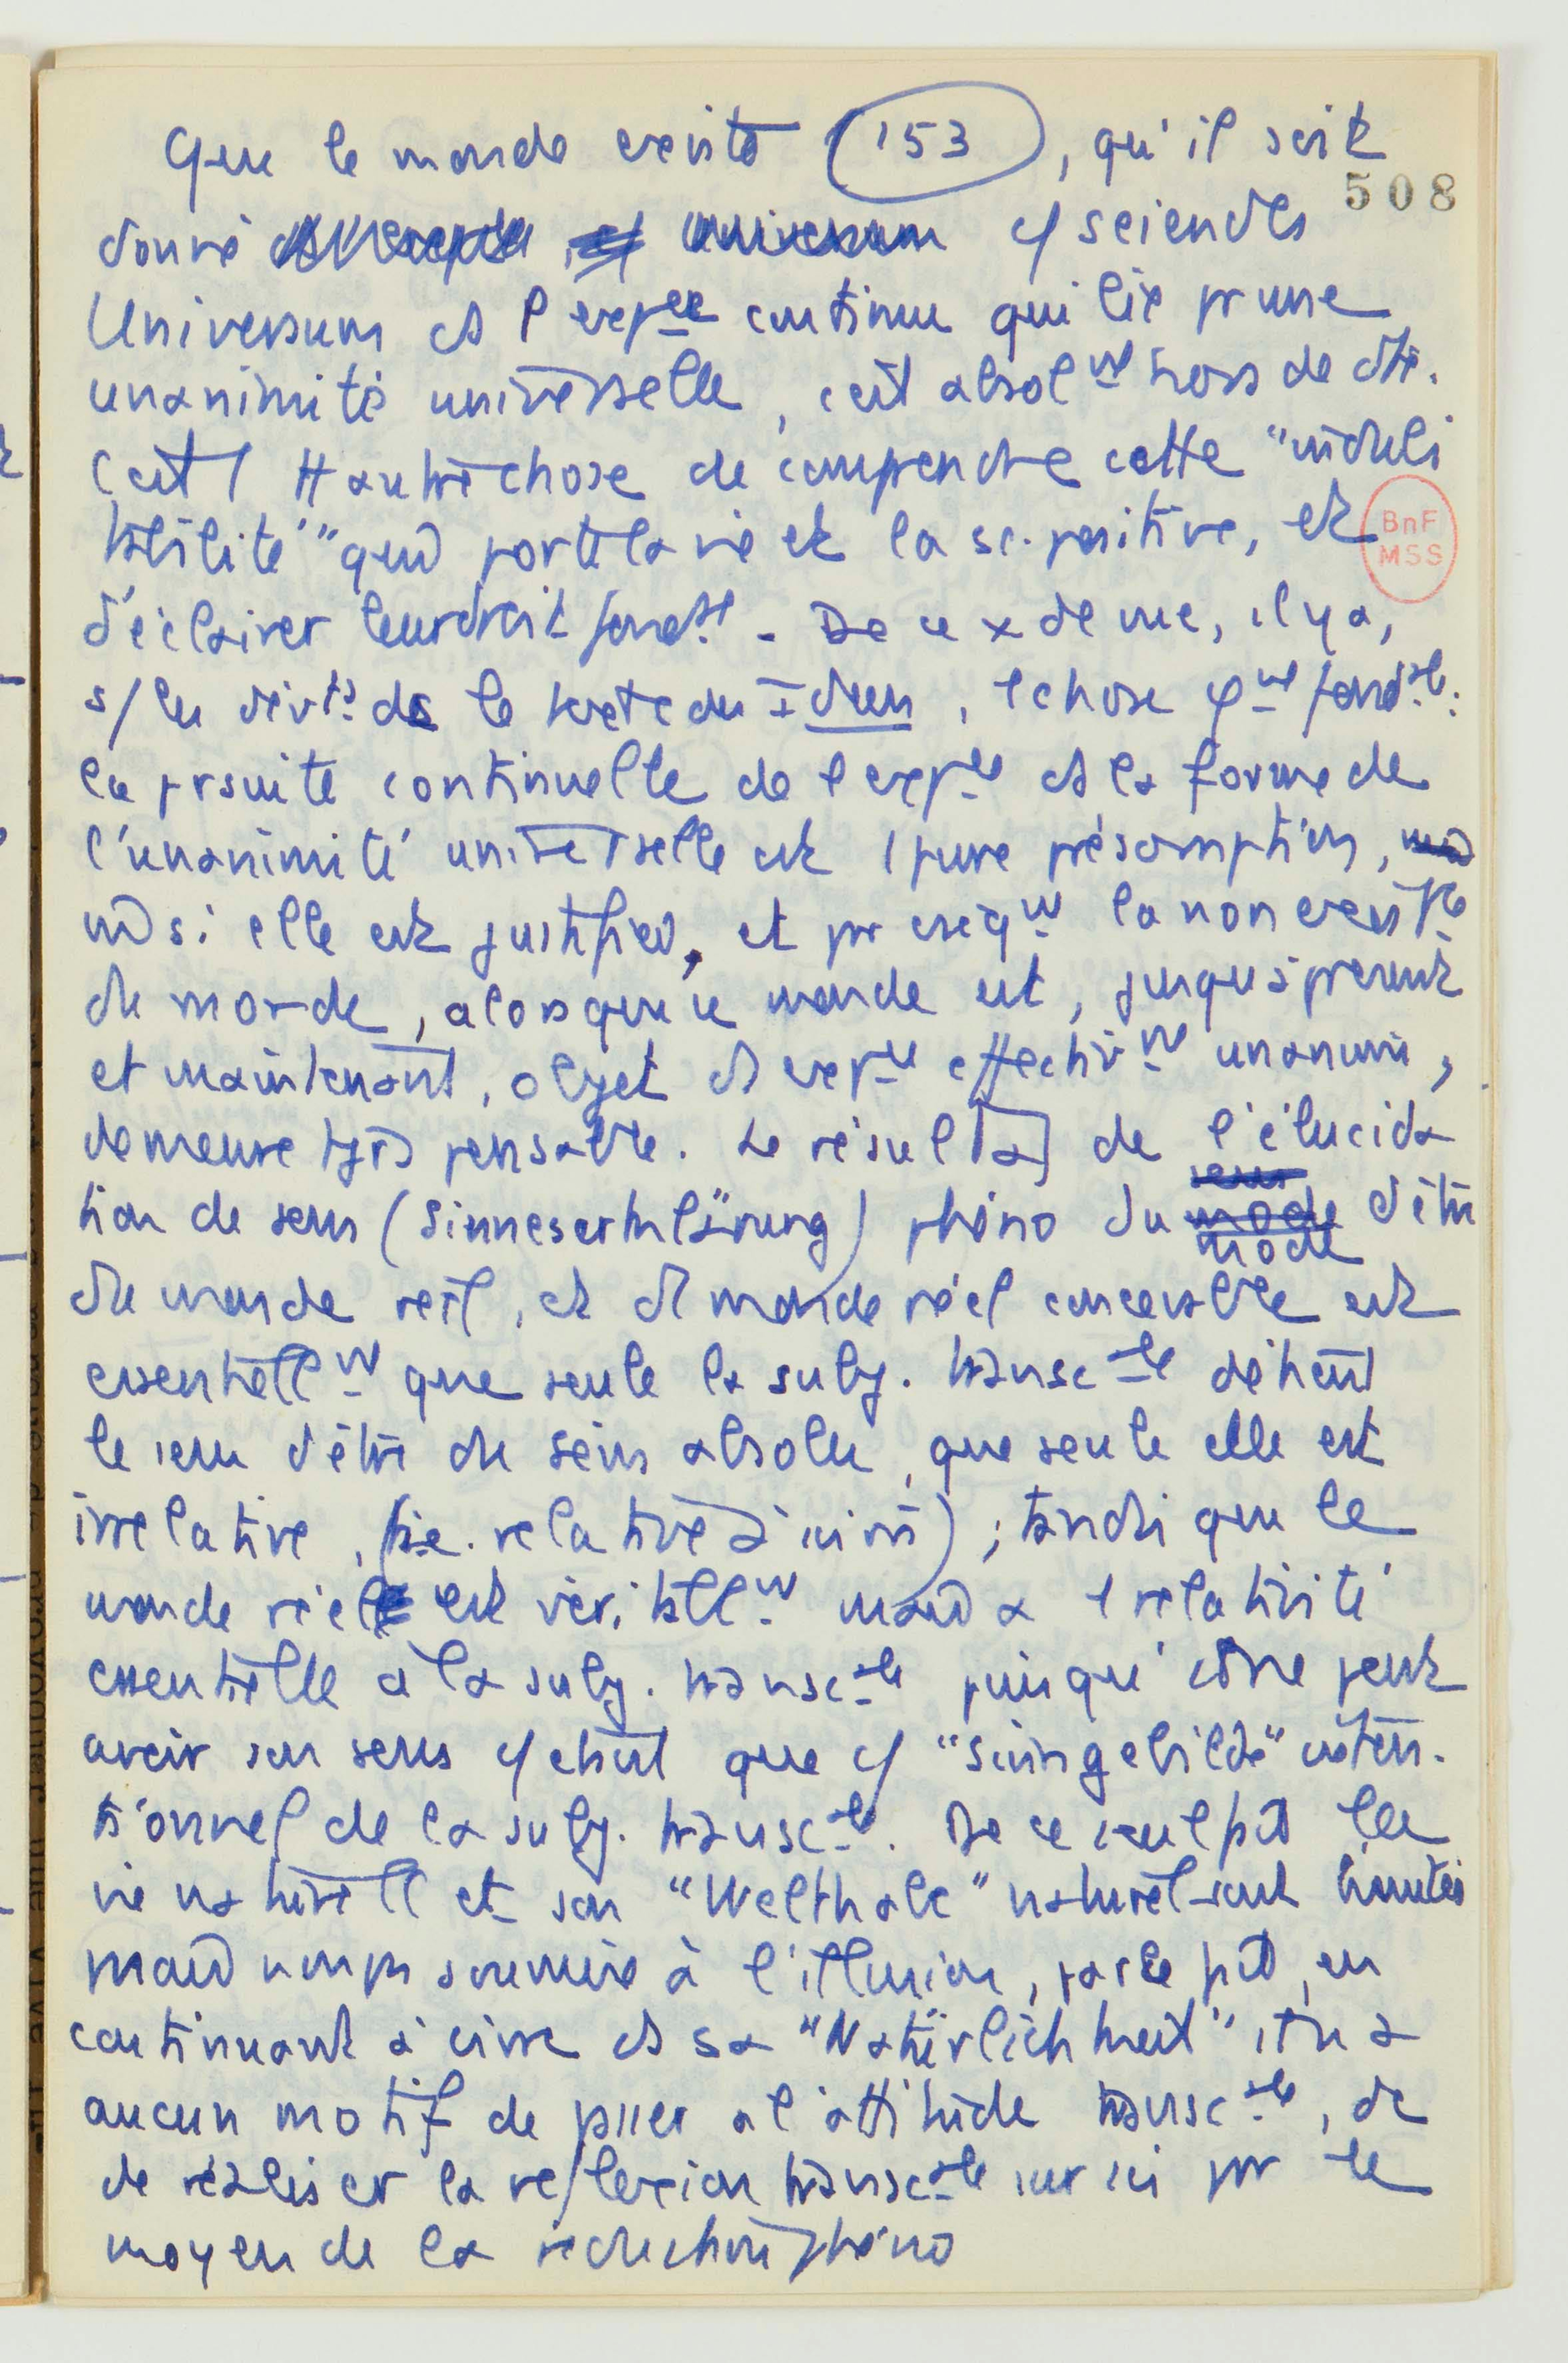 Que le monde existe (153), qu'il soit
508
donné universum c/ seiendes
Universum ds l'expce continue qui lie pr une
unanimité universelle, c'est absolmt hors de dte.
C'est 1 tt autre chose de comprendre cette "indubi
tabilité" qui porte la vie et la sc. positive, et
BnF
MSS
d'éclairer leur droit fondal. De ce x de vue, il y a,
s/ les dévts ds le texte des Ideen, 1 chose φque fondale:
la prsuite continuelle de l'expce ds la forme de
l'unanimité universelle est 1 pure présomption,
si elle est justifiée, et pr la non existce
du monde, alors que ce monde est, jusqu'à présent
et maintenant, objet d'expce effectivmt unanime,
demeure tjrs pensable. Le résultat de l'élucida
tion de sens (Sinneserklärung) phéno du mode d'être
du monde réel, et d'1 monde réel concevable est
essentiellmt que seule la subj. transcale détient
le sens d'être du Sein absolu, que seule elle est
irrelative, (i.e. relative à soi); tandis que le
monde réel est véritablmt mais a 1 relativité
essentielle à la subj. transcale puisqu'il ne peut
avoir son sens c/ étant que c/ "Sinngebilde" inten-
tionnel de la subj. transcale. De ce seul fait la
vie naturelle et son "Welthabe" naturel sont limités
mais non pas soumis à l'illusion, par le fait, en
continuant à vivre ds sa "Natürlichkeit" il n'a
aucun motif de passer à l'attitude transcale, de
de réaliser la réflexion transcale sur soi pr le
moyen de la réduction phéno